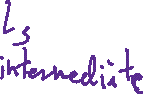 Ls
intermediate